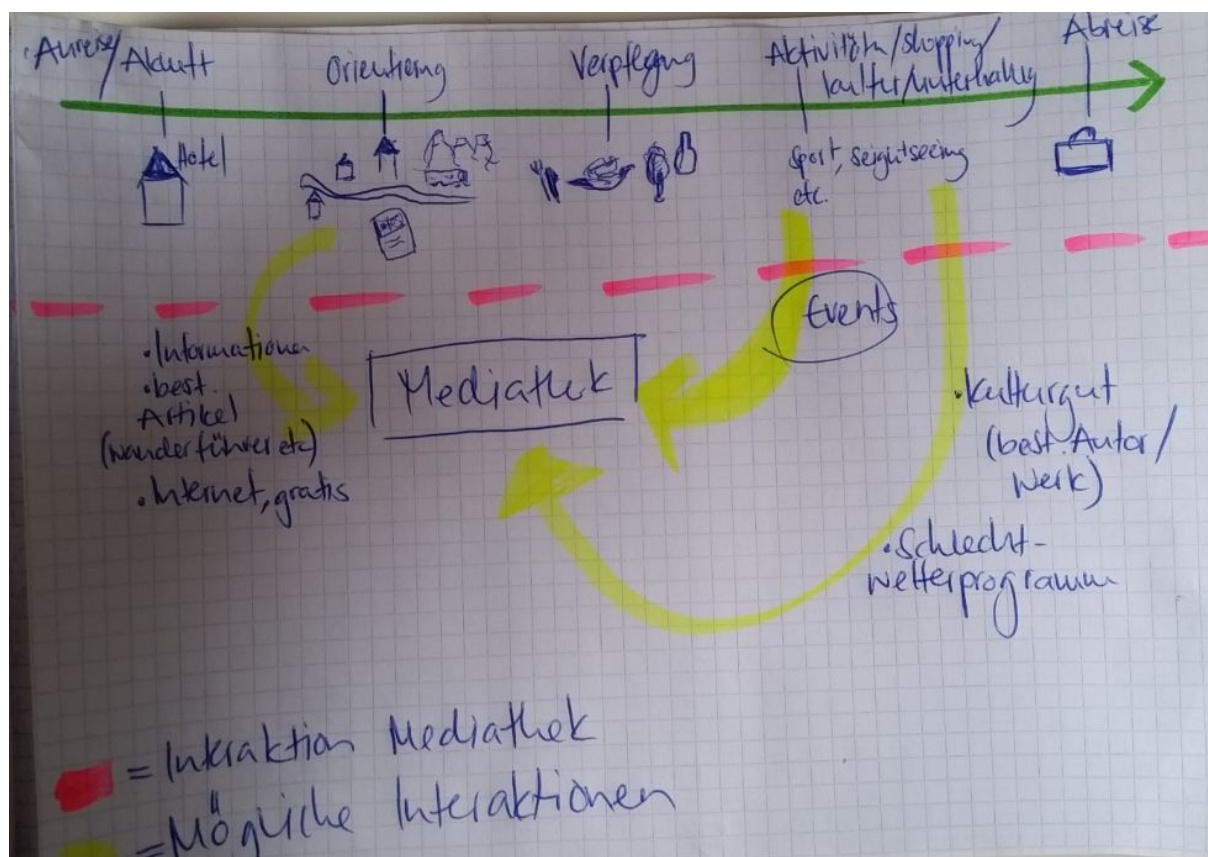 Anreise/
Akunft
Orientierung
Verpflegung
Aktivitäten/shopping/
kultur/unterhaltung
Abreise
Hotel
sport, seigutseeing
etc.
Events
• Informationen
• best.
Artikel
(wanderführer etc)
• Internet, gratis
Mediathek
• kulturgut
(best. Autor/
Werk)
• Schlecht-
wetterprogramm
= Interaktion Mediathek
= Mögliche Interaktionen